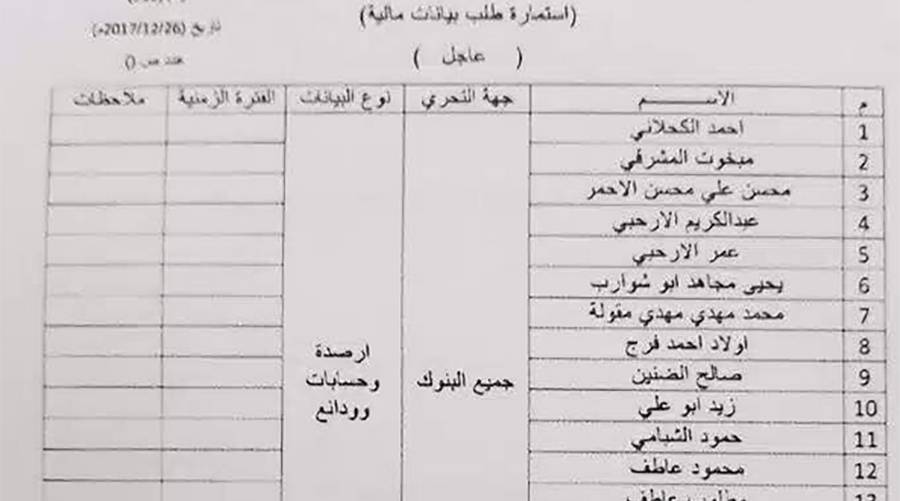 (استمارة طلب بيانات مالية)
تاريخ (2017/12/26م)
( عاجل )
م الاســـــم جهة التحري نوع البيانات الفترة الزمنية ملاحظات
1 احمد الكحلاني
2 مبخوت المشرفي
3 محسن علي محسن الاحمر
4 عبدالكريم الارحبي
5 عمر الارحبي
6 يحيى مجاهد ابو شوارب
7 محمد مهدي مهدي مقولة
8 اولاد احمد فرج
9 صالح الضنين
10 زيد ابو علي
11 حمود الشبامي
12 محمود عاطف
13 عاطف
جميع البنوك
ارصدة
وحسابات
وودائع